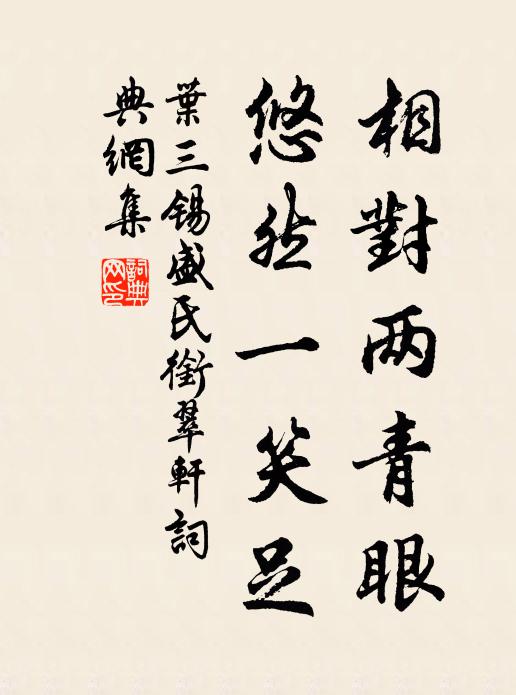 相對两青眼
悠然一笑足
葉三锡盛氏銜翠軒詞
典網集
詞典
网印